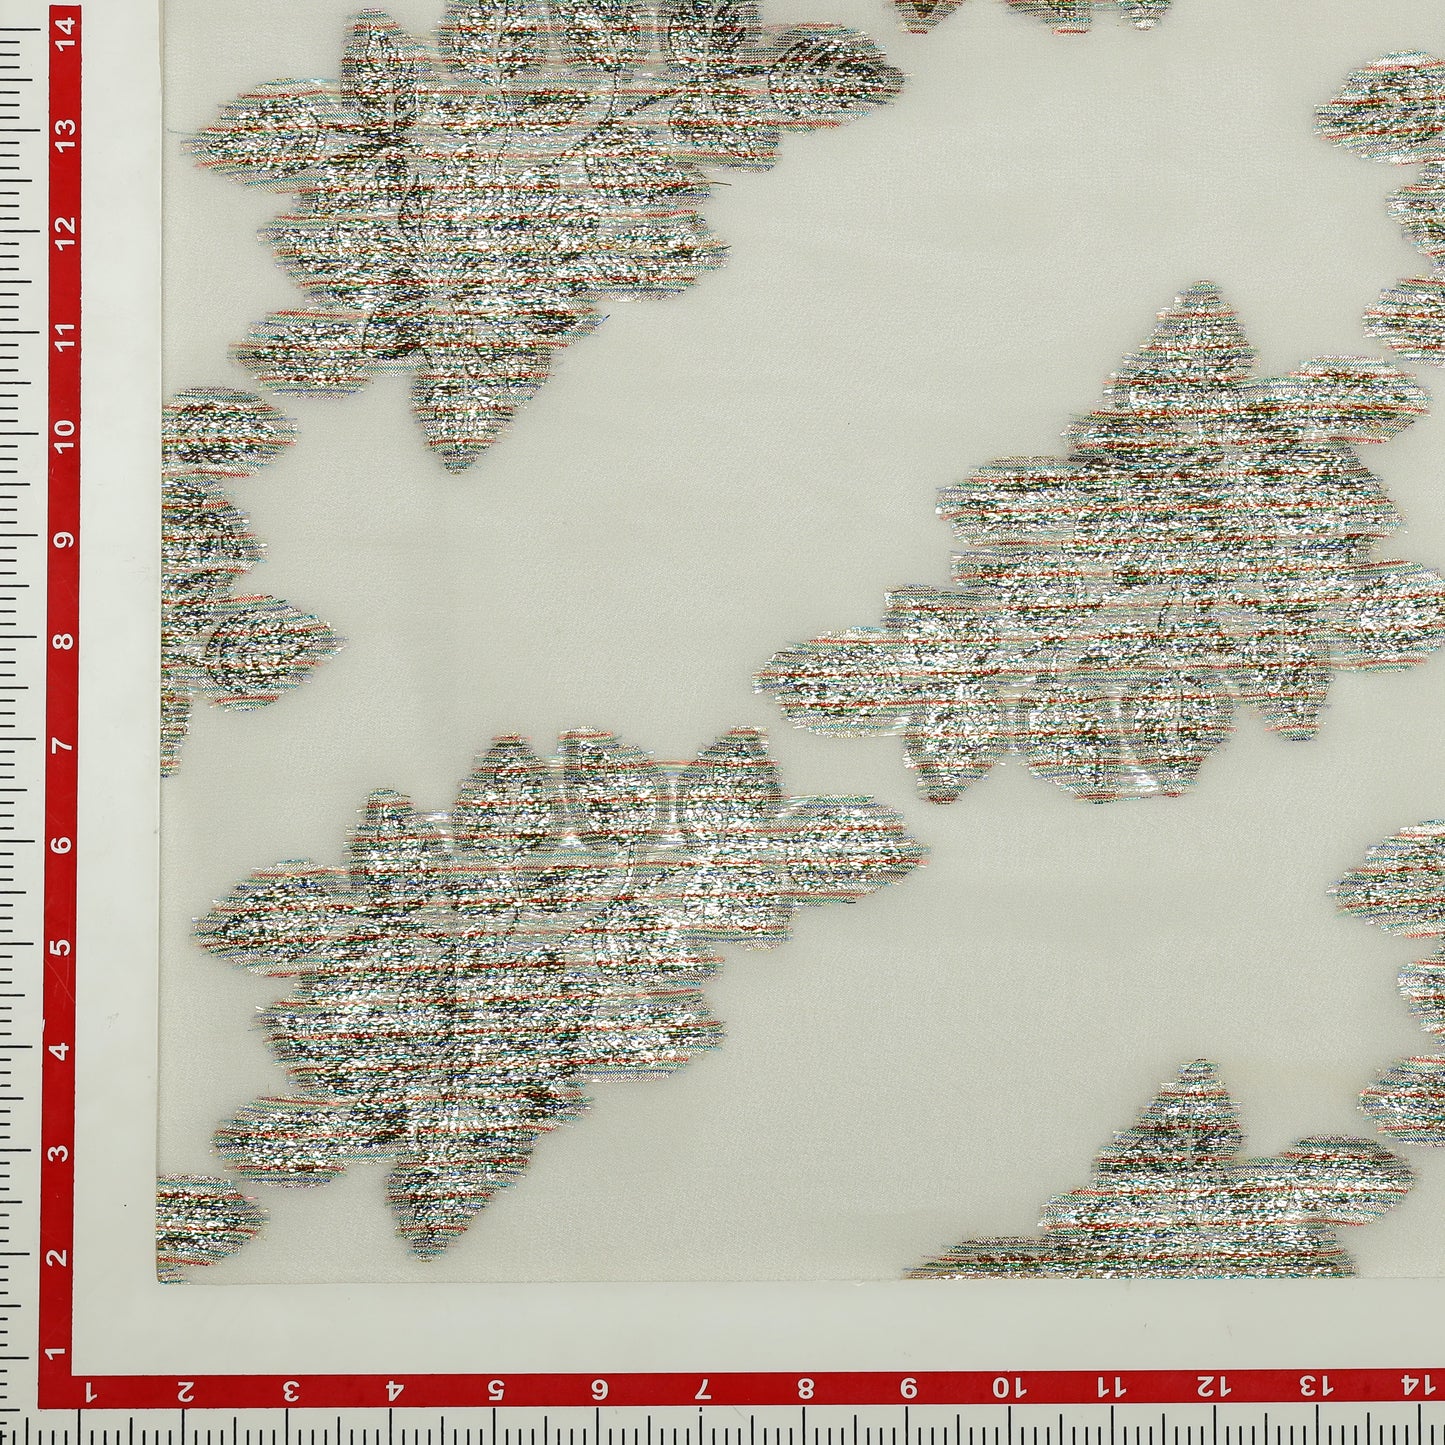 14
13
12
11
10
9
8
7
6
5
4
3
2
1
1 2 3 4 5 6 7 8 9 10 11 12 13 14